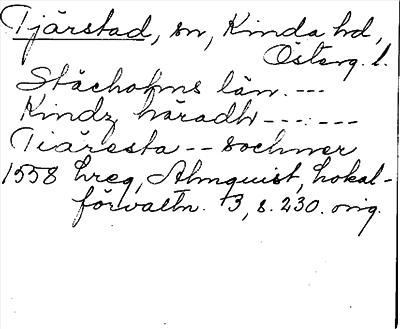 Tjärstad, sn, Kinda hd,
Österg. l.
Stächolms län. ---
Kindz häradh --- ---
Tiäresta -- sochner
1558 hreg, Almquist, Lokal-
förvaltn. 3, s. 230. orig.